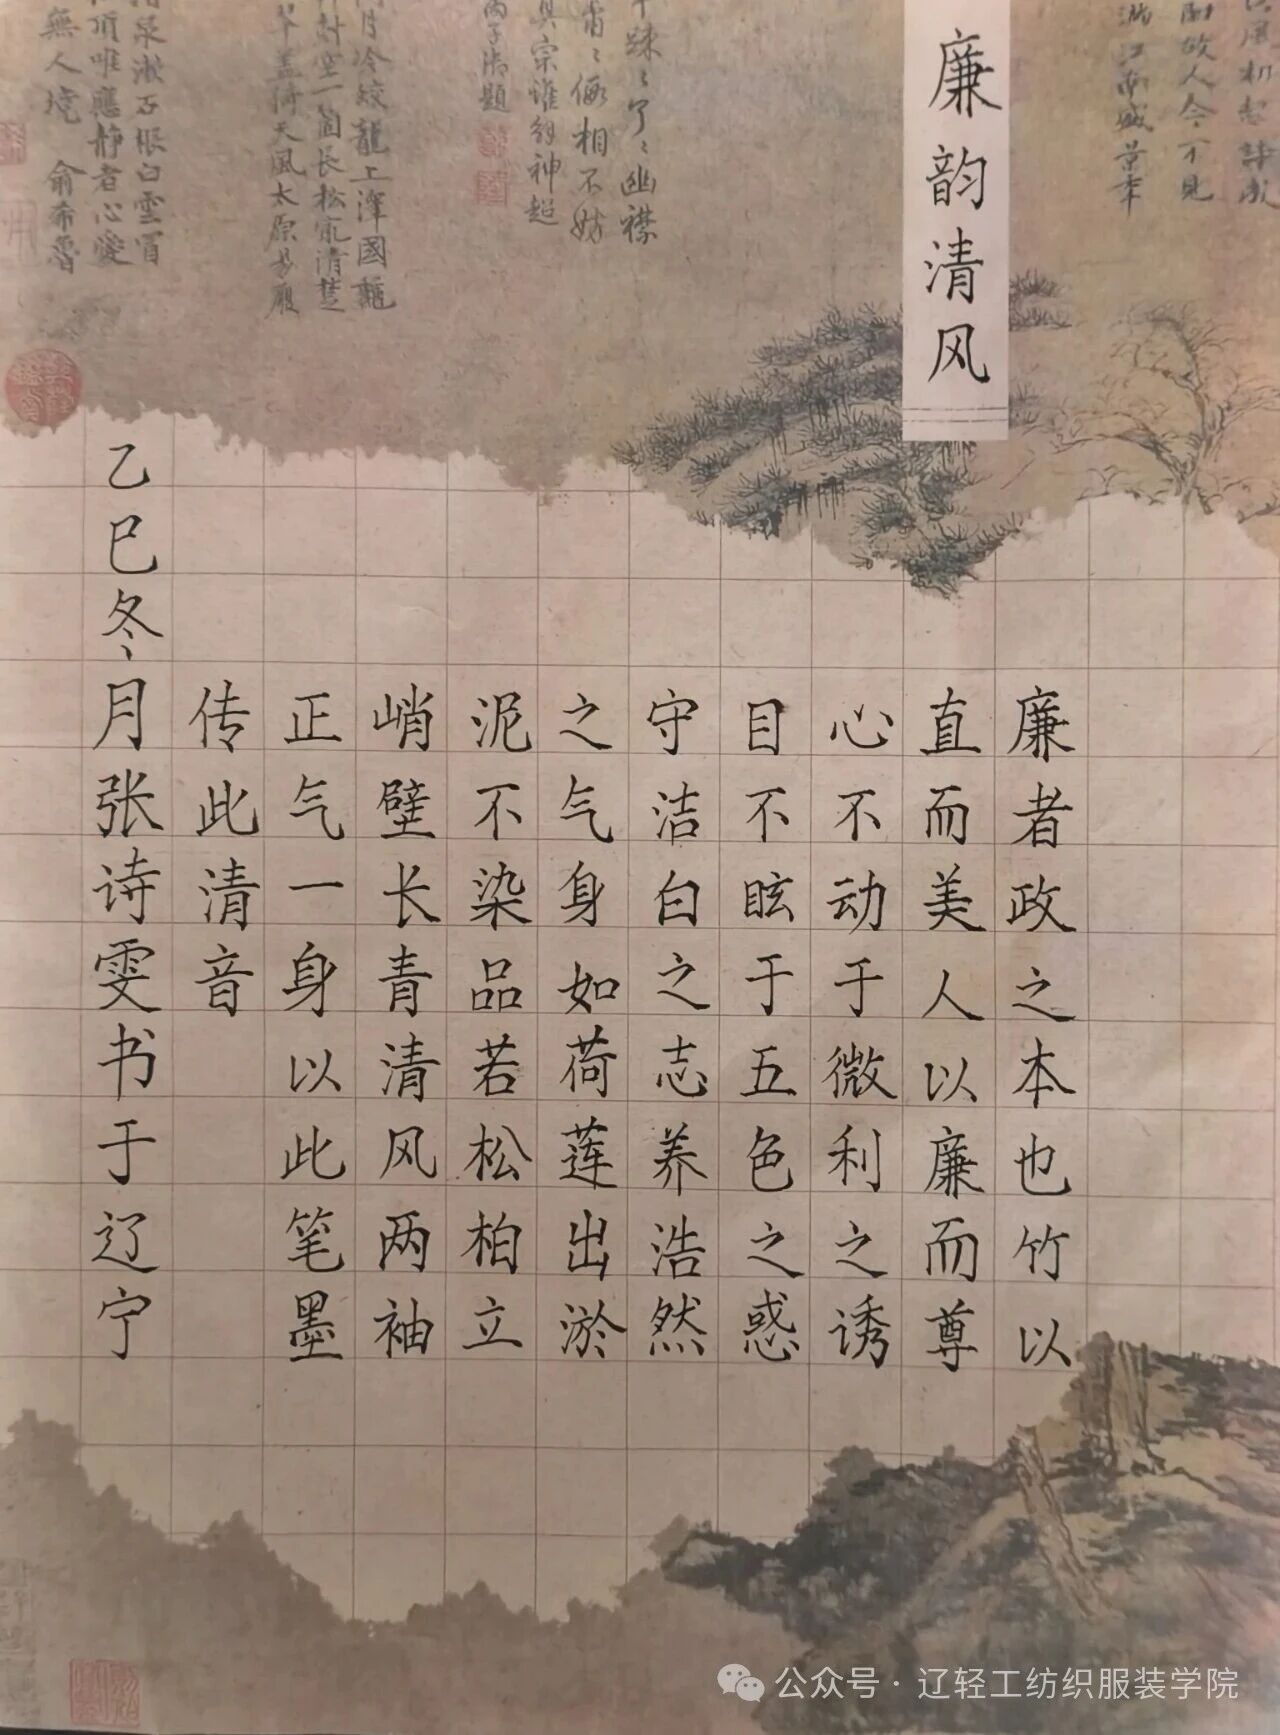 廉韵清风
廉者政之本也竹以
直而美人以廉而尊
心不动于微利之诱
目不眩于五色之惑
守洁白之志养浩然
之气身如荷莲出淤
泥不染品若松柏立
峭壁长青清风两袖
正气一身以此笔墨
传此清音
乙巳冬月张诗雯书于辽宁
公众号·辽轻工纺织服装学院